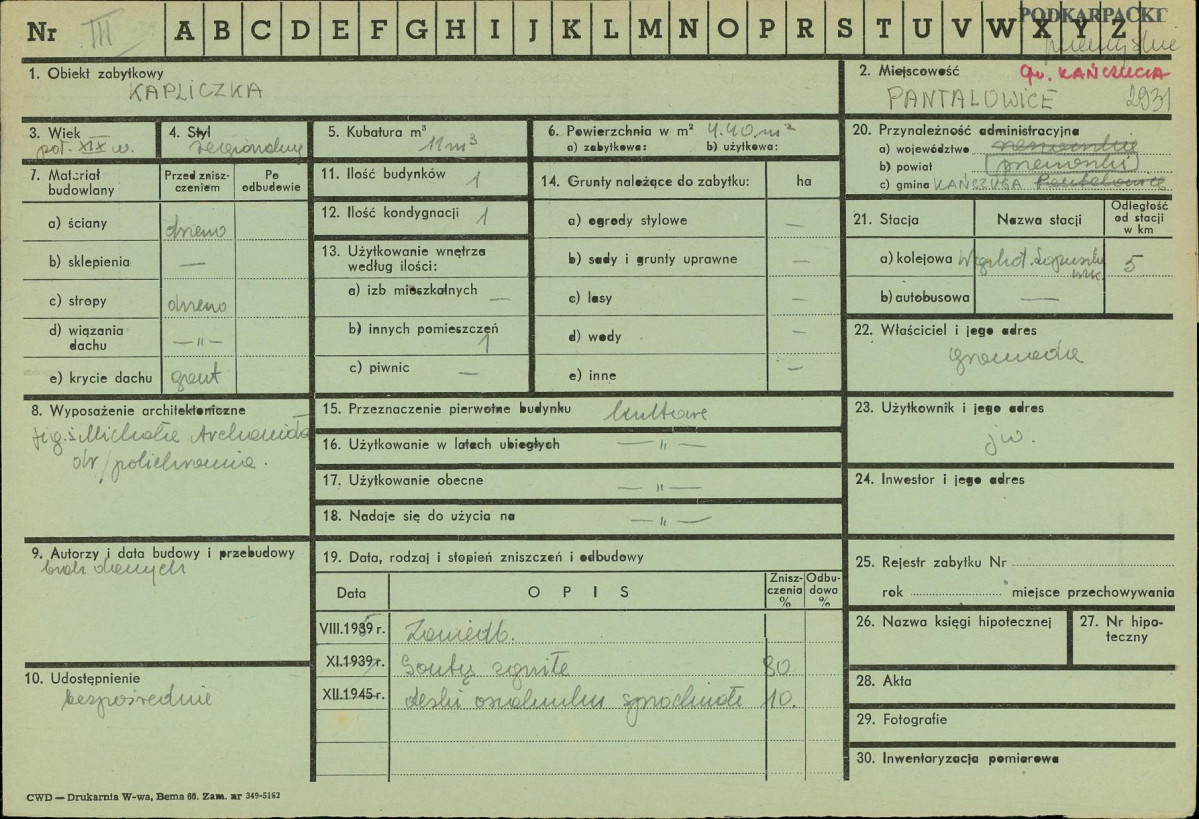 PODKARPACKI
Nr III A B C D E F G H I J K L M N O P R S T U V W X Y Z
przemyskie
1. Obiekt zabytkowy
KAPLICZKA
2. Miejscowość gw. KAŃCZUGA
PANTALOWICE 2931
3. Wiek
poł. XIX w.
4. Styl
regionalny
5. Kubatura m³
11 m³
6. Powierzchnia w m² 4.40 m²
a) zabytkowa: b) użytkowa:
20. Przynależność administracyjna
a) województwo rzeszowskie
b) powiat przeworski
c) gmina KAŃCZUGA Pantalowice
7. Materiał budowlany
Przed znisz-
czeniem
Po
odbudowie
a) ściany drewno
b) sklepienia —
c) stropy drewno
d) wiązania
dachu —"—
e) krycie dachu gont
11. Ilość budynków 1
12. Ilość kondygnacji 1
13. Użytkowanie wnętrza
według ilości:
a) izb mieszkalnych —
b) innych pomieszczeń
1
c) piwnic —
14. Grunty należące do zabytku: ha
a) ogrody stylowe —
b) sady i grunty uprawne —
c) lasy —
d) wody —
e) inne —
21. Stacja Nazwa stacji
Odległość
od stacji
w km
a) kolejowa 5
b) autobusowa —
22. Właściciel i jego adres
gromada
8. Wyposażenie architektoniczne
fig. ś. Michała Archanioła
dr/polichromia.
15. Przeznaczenie pierwotne budynku kultowe
16. Użytkowanie w latach ubiegłych —"—
17. Użytkowanie obecne —"—
18. Nadaje się do użycia na —"—
23. Użytkownik i jego adres
jw.
24. Inwestor i jego adres
9. Autorzy i data budowy i przebudowy
brak danych
19. Data, rodzaj i stopień zniszczeń i odbudowy
Data OPIS
Znisz-
czenia
%
Odbu-
dowa
%
VIII.1939 r. Zaniedb.
XI.1939 r. Gonty zgniłe 80
XII.1945 r. deski oszalunku spróchniałe 10.
25. Rejestr zabytku Nr
rok miejsce przechowywania
26. Nazwa księgi hipotecznej
27. Nr hipo-
teczny
10. Udostępnienie
bezpośrednie
28. Akta
29. Fotografie
30. Inwentaryzacja pomiarowa
CWD — Drukarnia W-wa, Bema 60. Zam. nr 349-5162